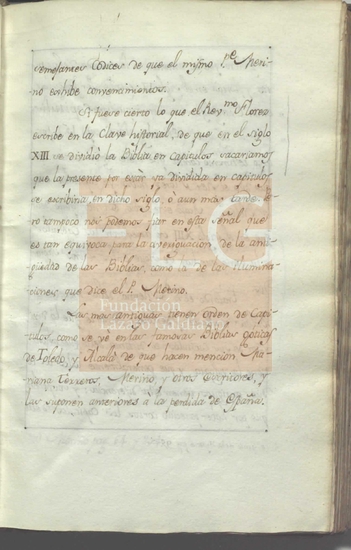 semejantes Codices de que el mismo P.e Meri-
no exhibe convencimientos.
Si fuese cierto lo que el Rey.mo Florez
escribe en la Clave historial, de que en el siglo
XIII se dividió la Biblia en Capitulos sacariamos
que la presente por estar ya dividida en capitulos
se escribiria en dicho siglo, o aun mas tarde. Pe-
ro tampoco nos podemos fiar en esta señal que
es tan equivoca para la averiguacion de la anti-
guedad de las Biblias, como la de las Ilumina-
ciones que dice el P. Merino.
Las mas antiguas tienen orden de Capi-
tulos, como se ve en las famosas Biblias goticas
de Toledo, y Alcalá de que hacen mención Ma-
riana Terreros, Merino, y otros Escritores, y
las suponen anteriores à la perdida de España.
FLG
Fundación
Lázaro Galdiano